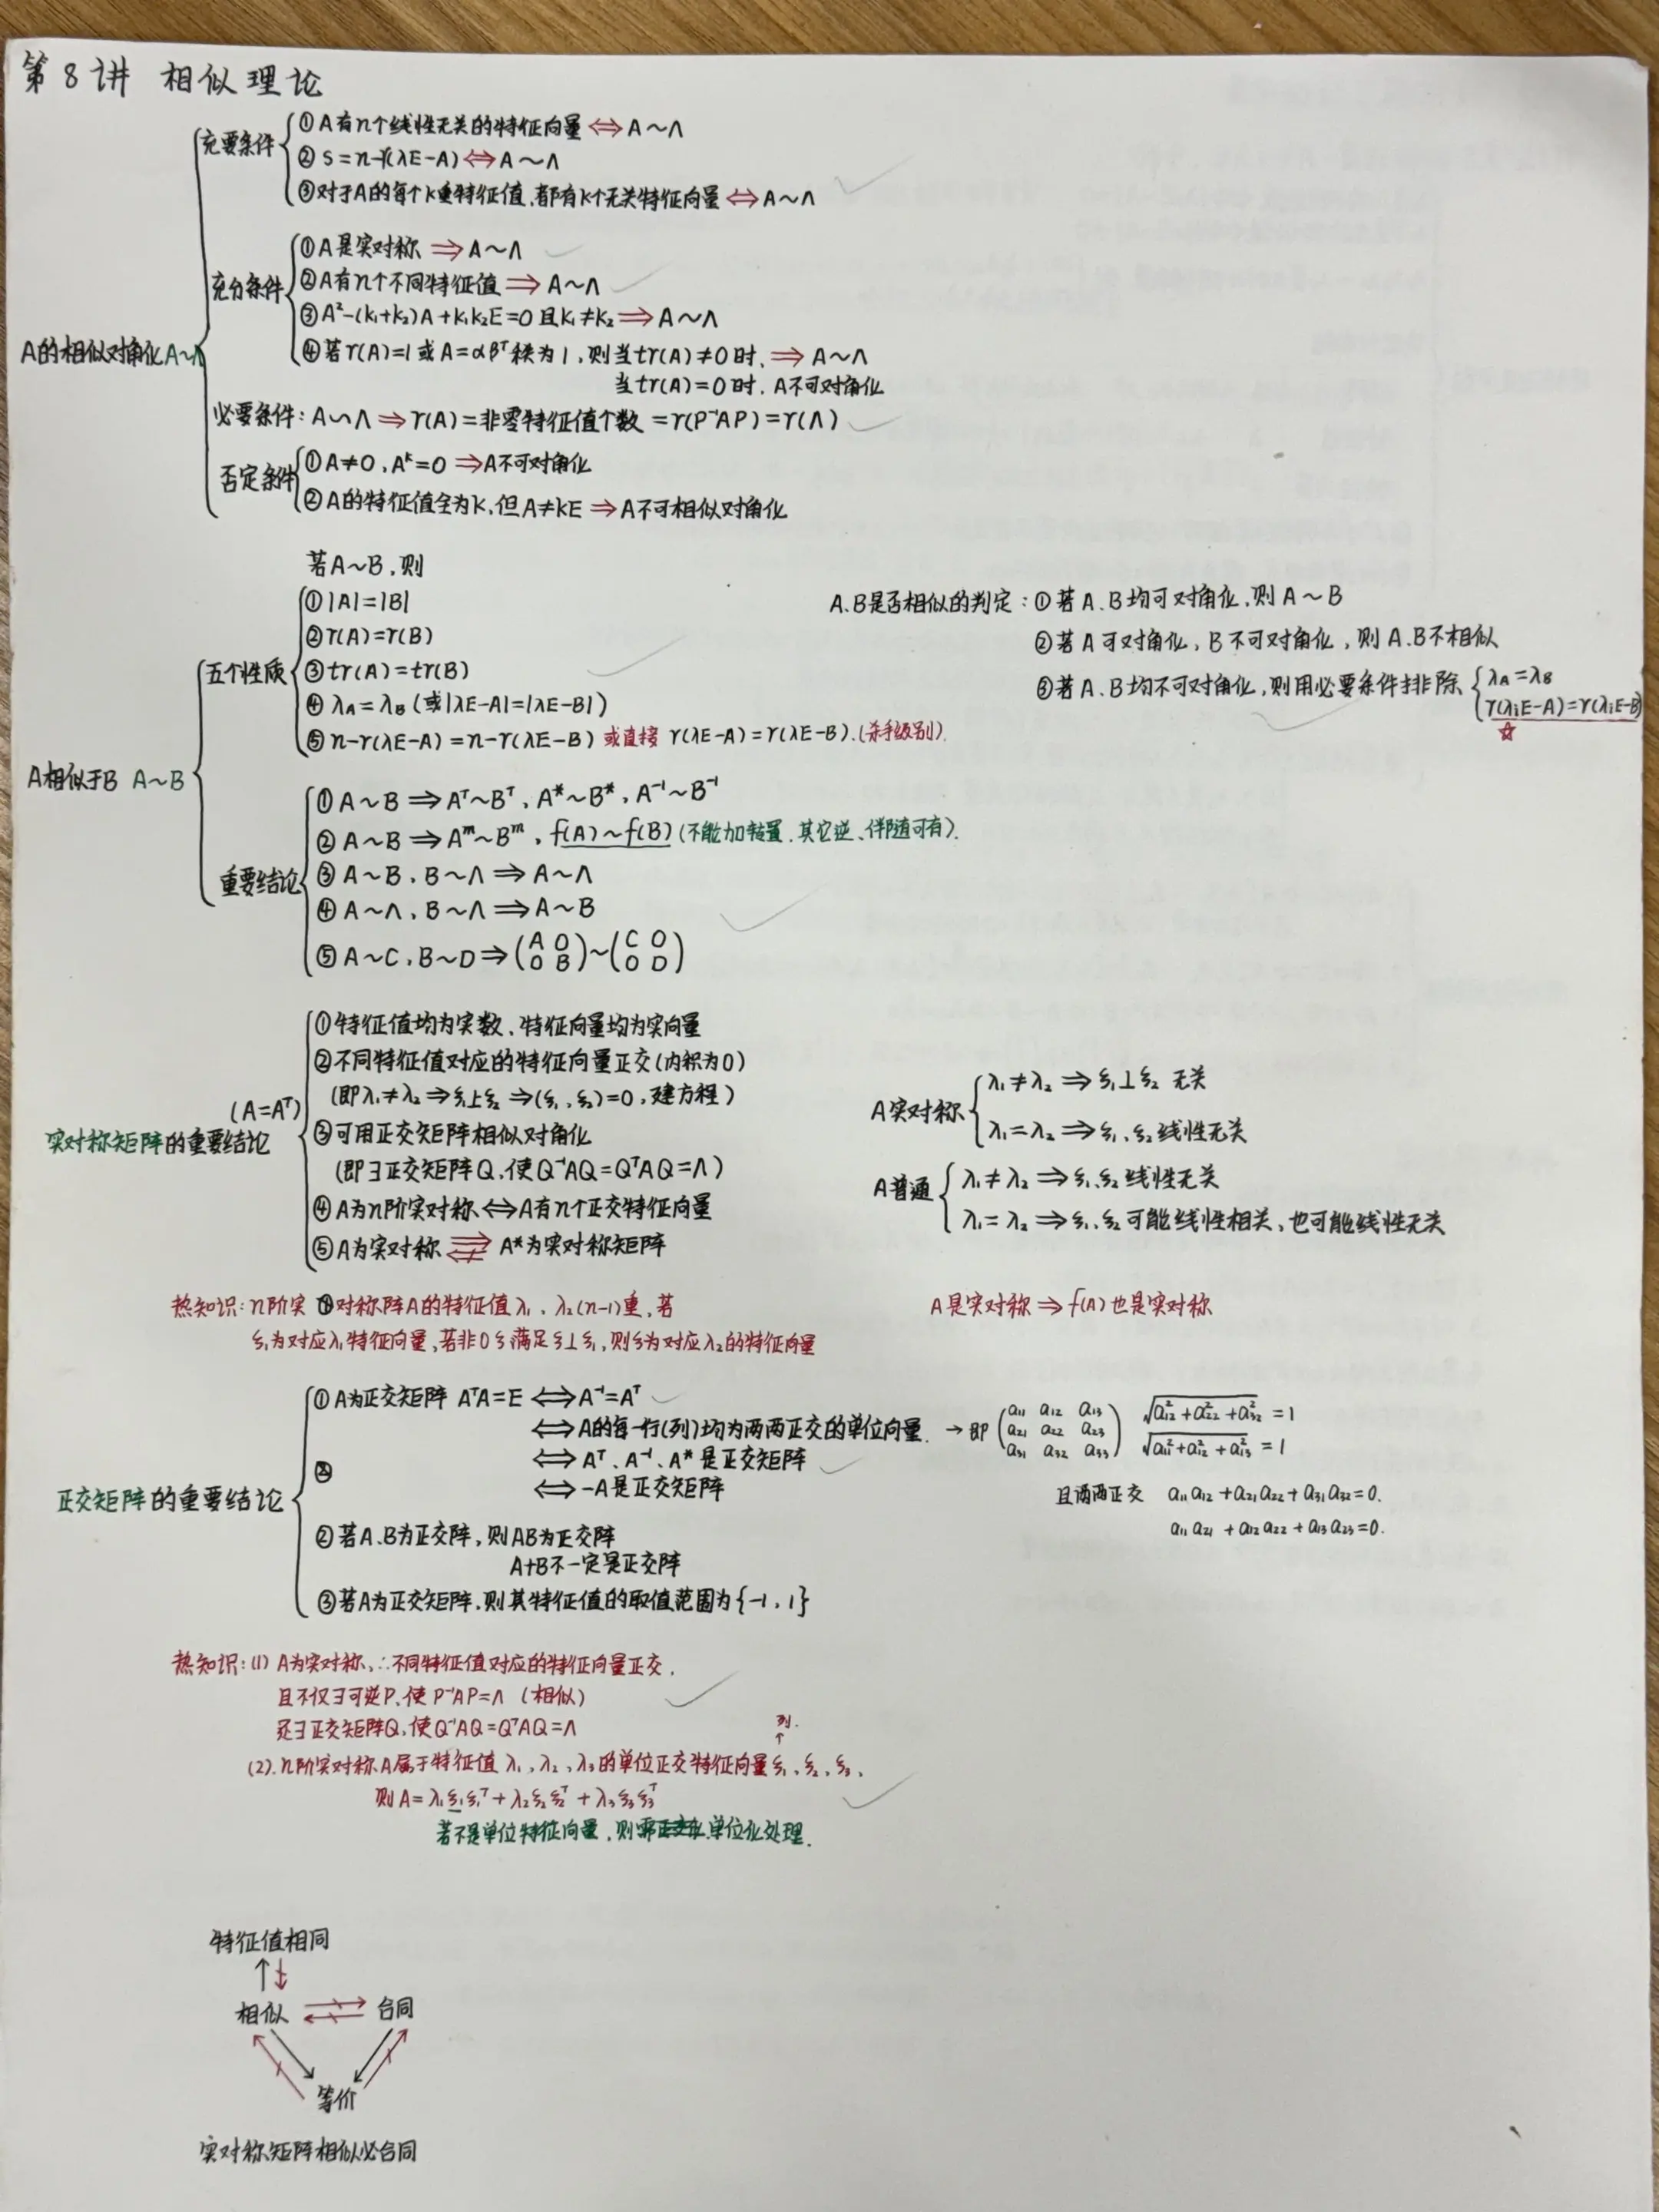 第8讲 相似理论
A的相似对角化 A~Λ
充要条件
①A有n个线性无关的特征向量 ⇔ A~Λ
②S=n-r(λE-A) ⇔ A~Λ
③对于A的每个k重特征值,都有k个无关特征向量 ⇔ A~Λ
充分条件
①A是实对称 ⇒ A~Λ
②A有n个不同特征值 ⇒ A~Λ
③A²-(k₁+k₂)A+k₁k₂E=0 且k₁≠k₂ ⇒ A~Λ
④若r(A)=1或A=αβᵀ秩为1,则当tr(A)≠0时, ⇒ A~Λ
当tr(A)=0时,A不可对角化
必要条件: A~Λ ⇒ r(A)=非零特征值个数=r(P⁻¹AP)=r(Λ)
否定条件
①A≠0,Aᵏ=0 ⇒ A不可对角化
②A的特征值全为k,但A≠kE ⇒ A不可相似对角化
A相似于B A~B
若A~B,则
五个性质
①|A|=|B|
②r(A)=r(B)
③tr(A)=tr(B)
④λ_A=λ_B(或|λE-A|=|λE-B|)
⑤n-r(λE-A)=n-r(λE-B) 或直接 r(λE-A)=r(λE-B).(杀手级别).
A.B是否相似的判定: ①若A.B均可对角化,则A~B
②若A可对角化,B不可对角化,则A.B不相似
③若A.B均不可对角化,则用必要条件排除 { λ_A=λ_B
r(λᵢE-A)=r(λᵢE-B)
☆
重要结论
①A~B ⇒ Aᵀ~Bᵀ, A*~B*, A⁻¹~B⁻¹
②A~B ⇒ Aᵐ~Bᵐ, f(A)~f(B) (不能加转置.其它逆、伴随可有).
③A~B, B~Λ ⇒ A~Λ
④A~Λ, B~Λ ⇒ A~B
⑤A~C, B~D ⇒ (A O
O B)~(C O
O D)
(A=Aᵀ)
实对称矩阵的重要结论
①特征值均为实数,特征向量均为实向量
②不同特征值对应的特征向量正交(内积为0)
(即λ₁≠λ₂ ⇒ ξ₁⊥ξ₂ ⇒ (ξ₁,ξ₂)=0,建方程)
③可用正交矩阵相似对角化
(即∃正交矩阵Q,使Q⁻¹AQ=QᵀAQ=Λ)
④A为n阶实对称 ⇔ A有n个正交特征向量
⑤A为实对称 ⇄ A*为实对称矩阵
A实对称 { λ₁≠λ₂ ⇒ ξ₁⊥ξ₂ 无关
λ₁=λ₂ ⇒ ξ₁、ξ₂线性无关
A普通 { λ₁≠λ₂ ⇒ ξ₁、ξ₂线性无关
λ₁=λ₂ ⇒ ξ₁、ξ₂可能线性相关,也可能线性无关
热知识: n阶实对称阵A的特征值λ₁、λ₂(n-1)重,若
ξ₁为对应λ₁特征向量,若非0ξ满足ξ⊥ξ₁,则ξ为对应λ₂的特征向量
A是实对称 ⇒ f(A)也是实对称
正交矩阵的重要结论
①A为正交矩阵 AᵀA=E ⇔ A⁻¹=Aᵀ
⇔ A的每一行(列)均为两两正交的单位向量.
⇔ Aᵀ、A⁻¹、A*是正交矩阵
⇔ -A是正交矩阵
→ 即 (a₁₁ a₁₂ a₁₃
a₂₁ a₂₂ a₂₃
a₃₁ a₃₂ a₃₃)
√(a₁₂²+a₂₂²+a₃₂²)=1
√(a₁₁²+a₁₂²+a₁₃²)=1
且两两正交 a₁₁a₁₂+a₂₁a₂₂+a₃₁a₃₂=0.
a₁₁a₂₁+a₁₂a₂₂+a₁₃a₂₃=0.
②若A.B为正交阵,则AB为正交阵
A+B不一定是正交阵
③若A为正交矩阵,则其特征值的取值范围为{-1,1}
热知识:(1) A为实对称,∴不同特征值对应的特征向量正交,
且不仅∃可逆P,使P⁻¹AP=Λ (相似)
还∃正交矩阵Q,使Q⁻¹AQ=QᵀAQ=Λ
列.
↑
(2).n阶实对称A属于特征值λ₁、λ₂、λ₃的单位正交特征向量ξ₁、ξ₂、ξ₃,
则A=λ₁ξ₁ξ₁ᵀ+λ₂ξ₂ξ₂ᵀ+λ₃ξ₃ξ₃ᵀ
若不是单位特征向量,则需单位化处理.
特征值相同
相似 合同
等价
实对称矩阵相似必合同